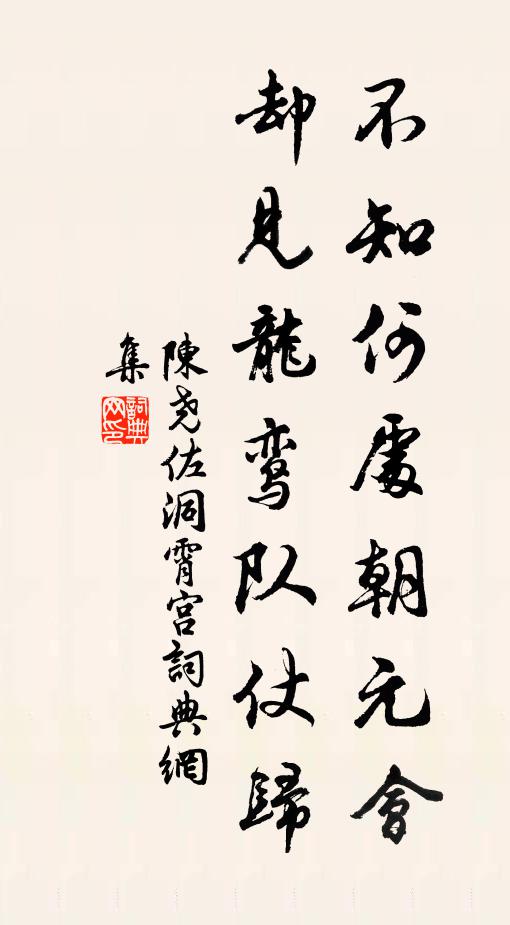 不知何處朝元會
却見龍鸾队仗歸
陳尭佐洞霄宫詞典網
集
詞典网印